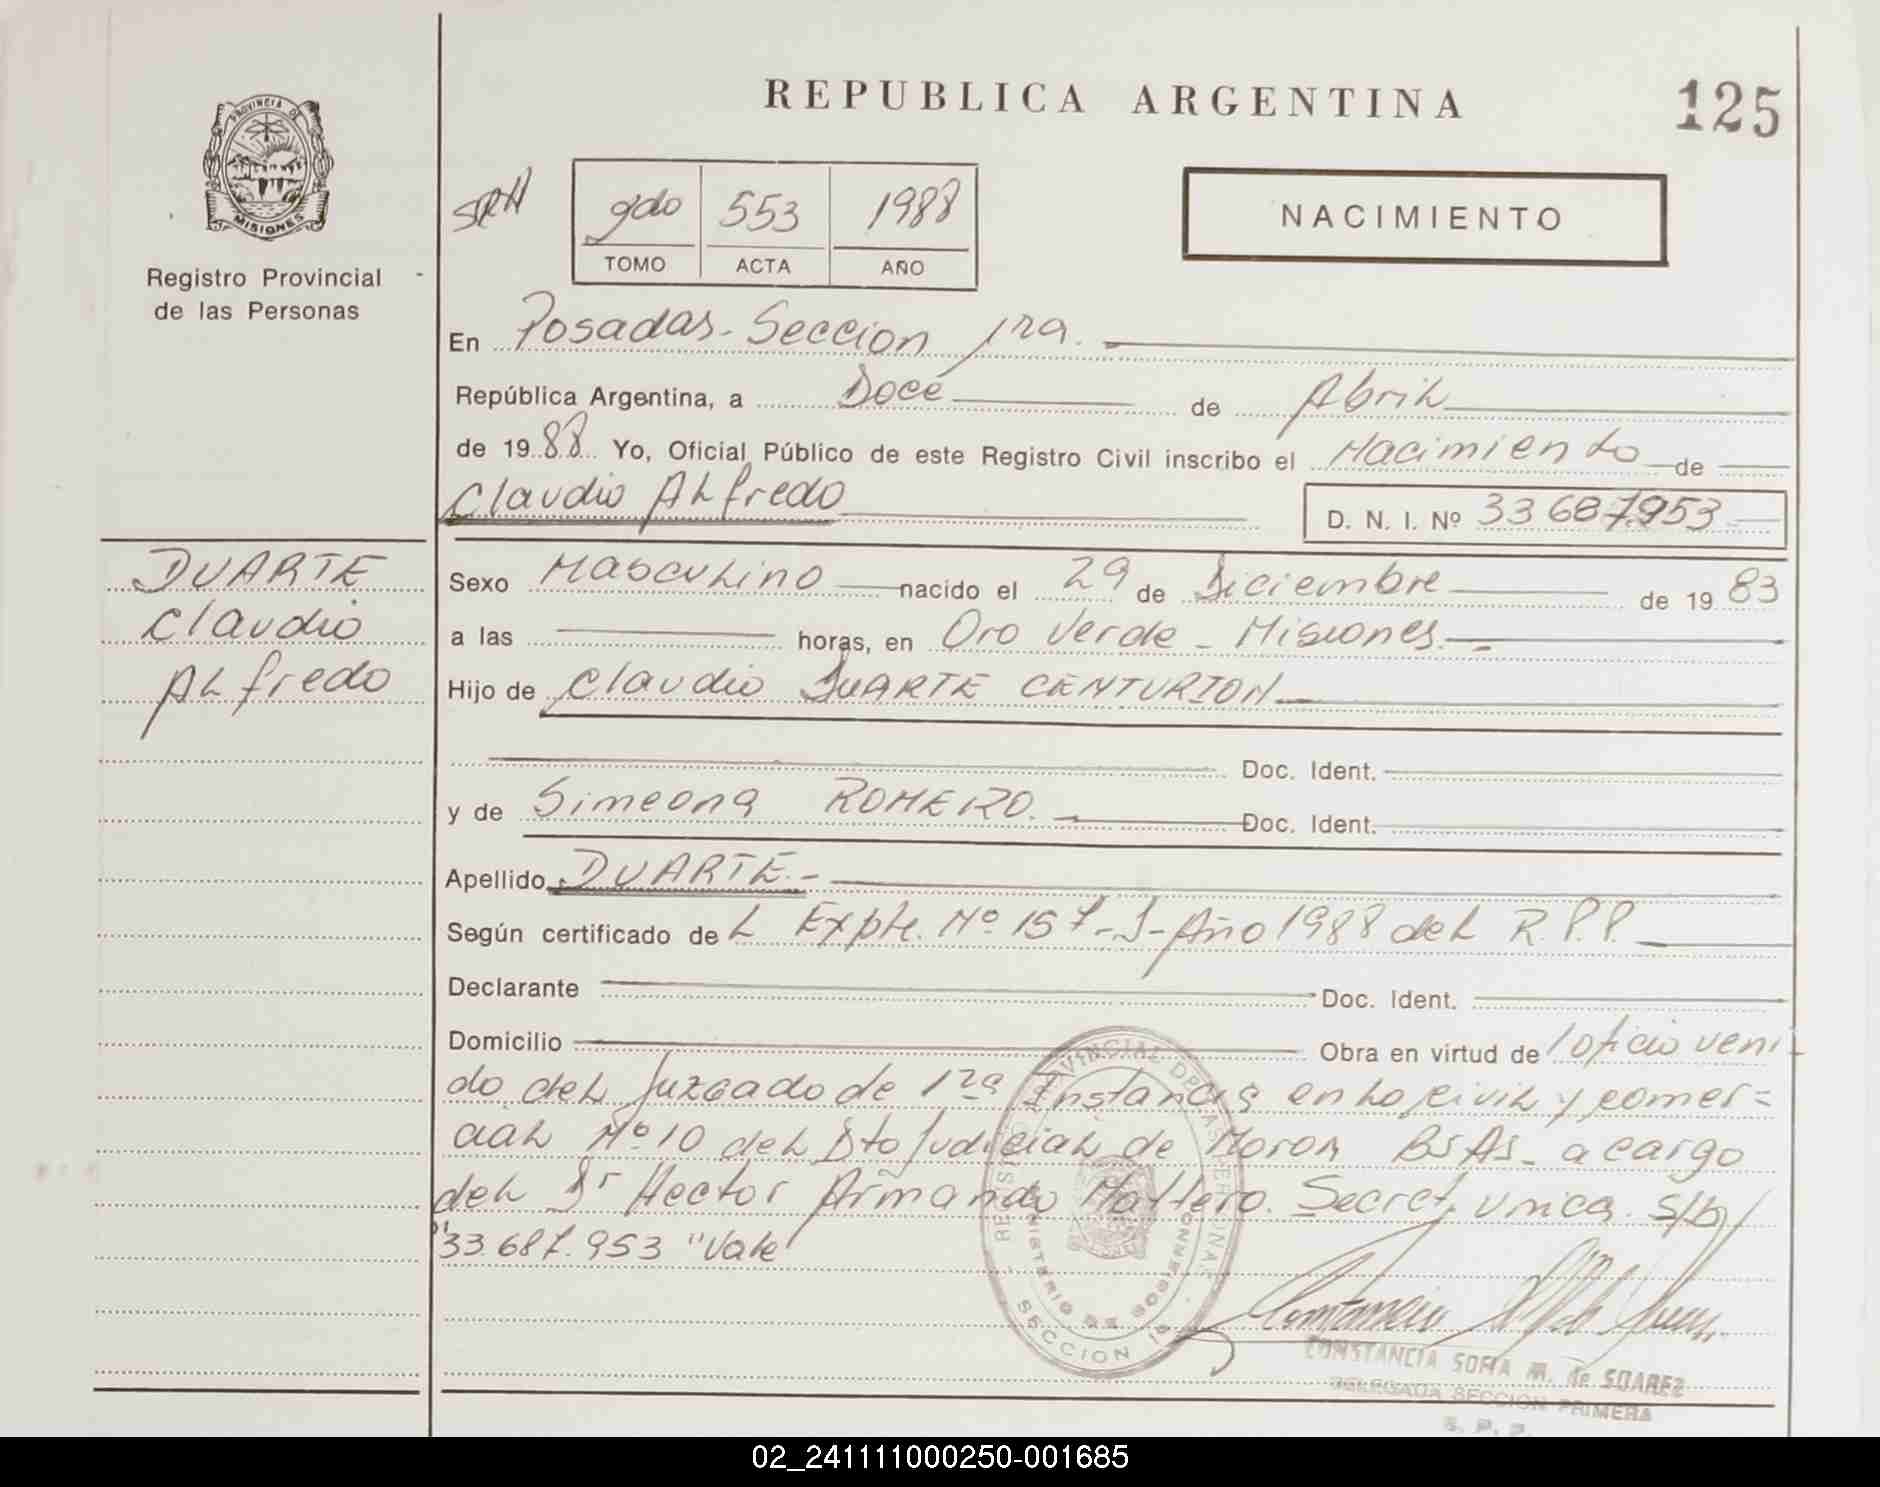 REPUBLICA ARGENTINA
125
PROVINCIA DE
MISIONES
Registro Provincial
de las Personas
SRA
2do 553 1988
TOMO ACTA AÑO
NACIMIENTO
En Posadas - Seccion 1ra.
República Argentina, a Doce de Abril
de 1988 Yo, Oficial Público de este Registro Civil inscribo el Nacimiento de
Claudio Alfredo D. N. I. Nº 33687953
DUARTE
Claudio
Alfredo
Sexo Masculino nacido el 29 de Diciembre de 1983
a las horas, en Oro Verde - Misiones.-
Hijo de Claudio DUARTE CENTURION
Doc. Ident.
y de Simeona ROMERO. Doc. Ident.
Apellido DUARTE.-
Según certificado del Expte. Nº 157-J-Año 1988 del R.P.P.
Declarante Doc. Ident.
Domicilio Obra en virtud de / oficio veni
do del Juzgado de 1ra Instancia en lo civil y comer=
cial Nº 10 del Dto Judicial de Moron BsAs - a cargo
del Dr Hector Armando Secret. unica. s/b/
"33.687.953 "Vale"
REGISTRO PROVINCIAL DE LAS PERSONAS
MINISTERIO DE GOBIERNO
SECCION 1a
CONSTANCIA SOFIA M. de SUAREZ
DELEGADA SECCION PRIMERA
R. P. P.
02_241111000250-001685